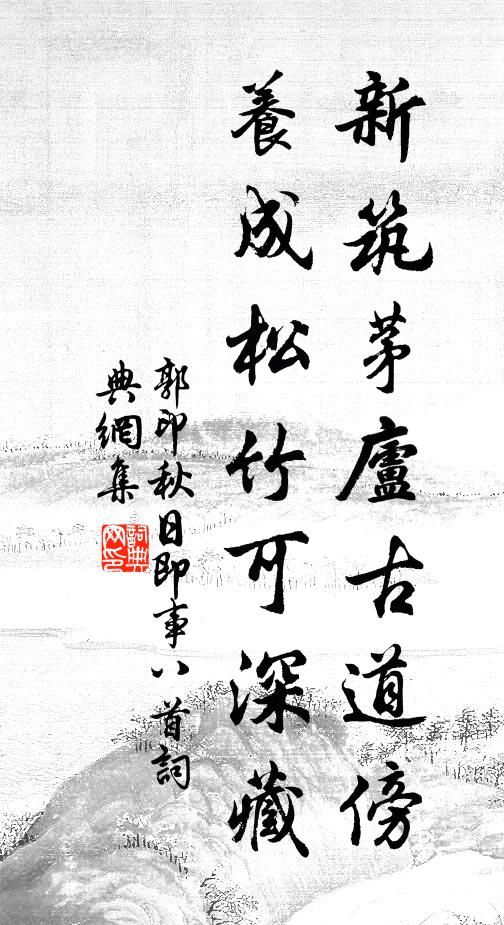 新筑茅廬古道傍
養成松竹可深藏
郭印秋日即事八首詞
典網集
詞典
网印